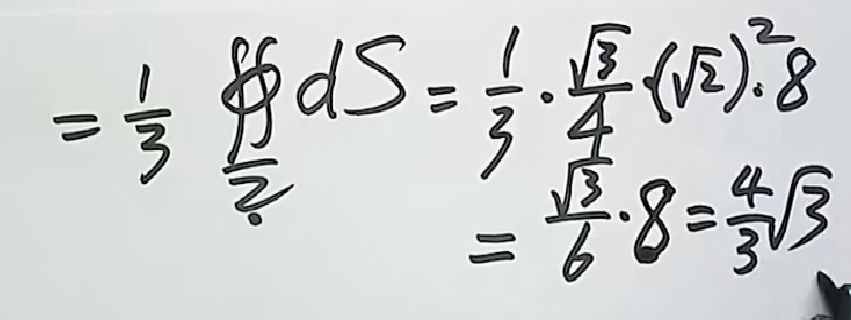 = 1/3 ∯_Σ dS = 1/3 · √3/4 · (√2)² · 8
= √3/6 · 8 = 4/3 √3